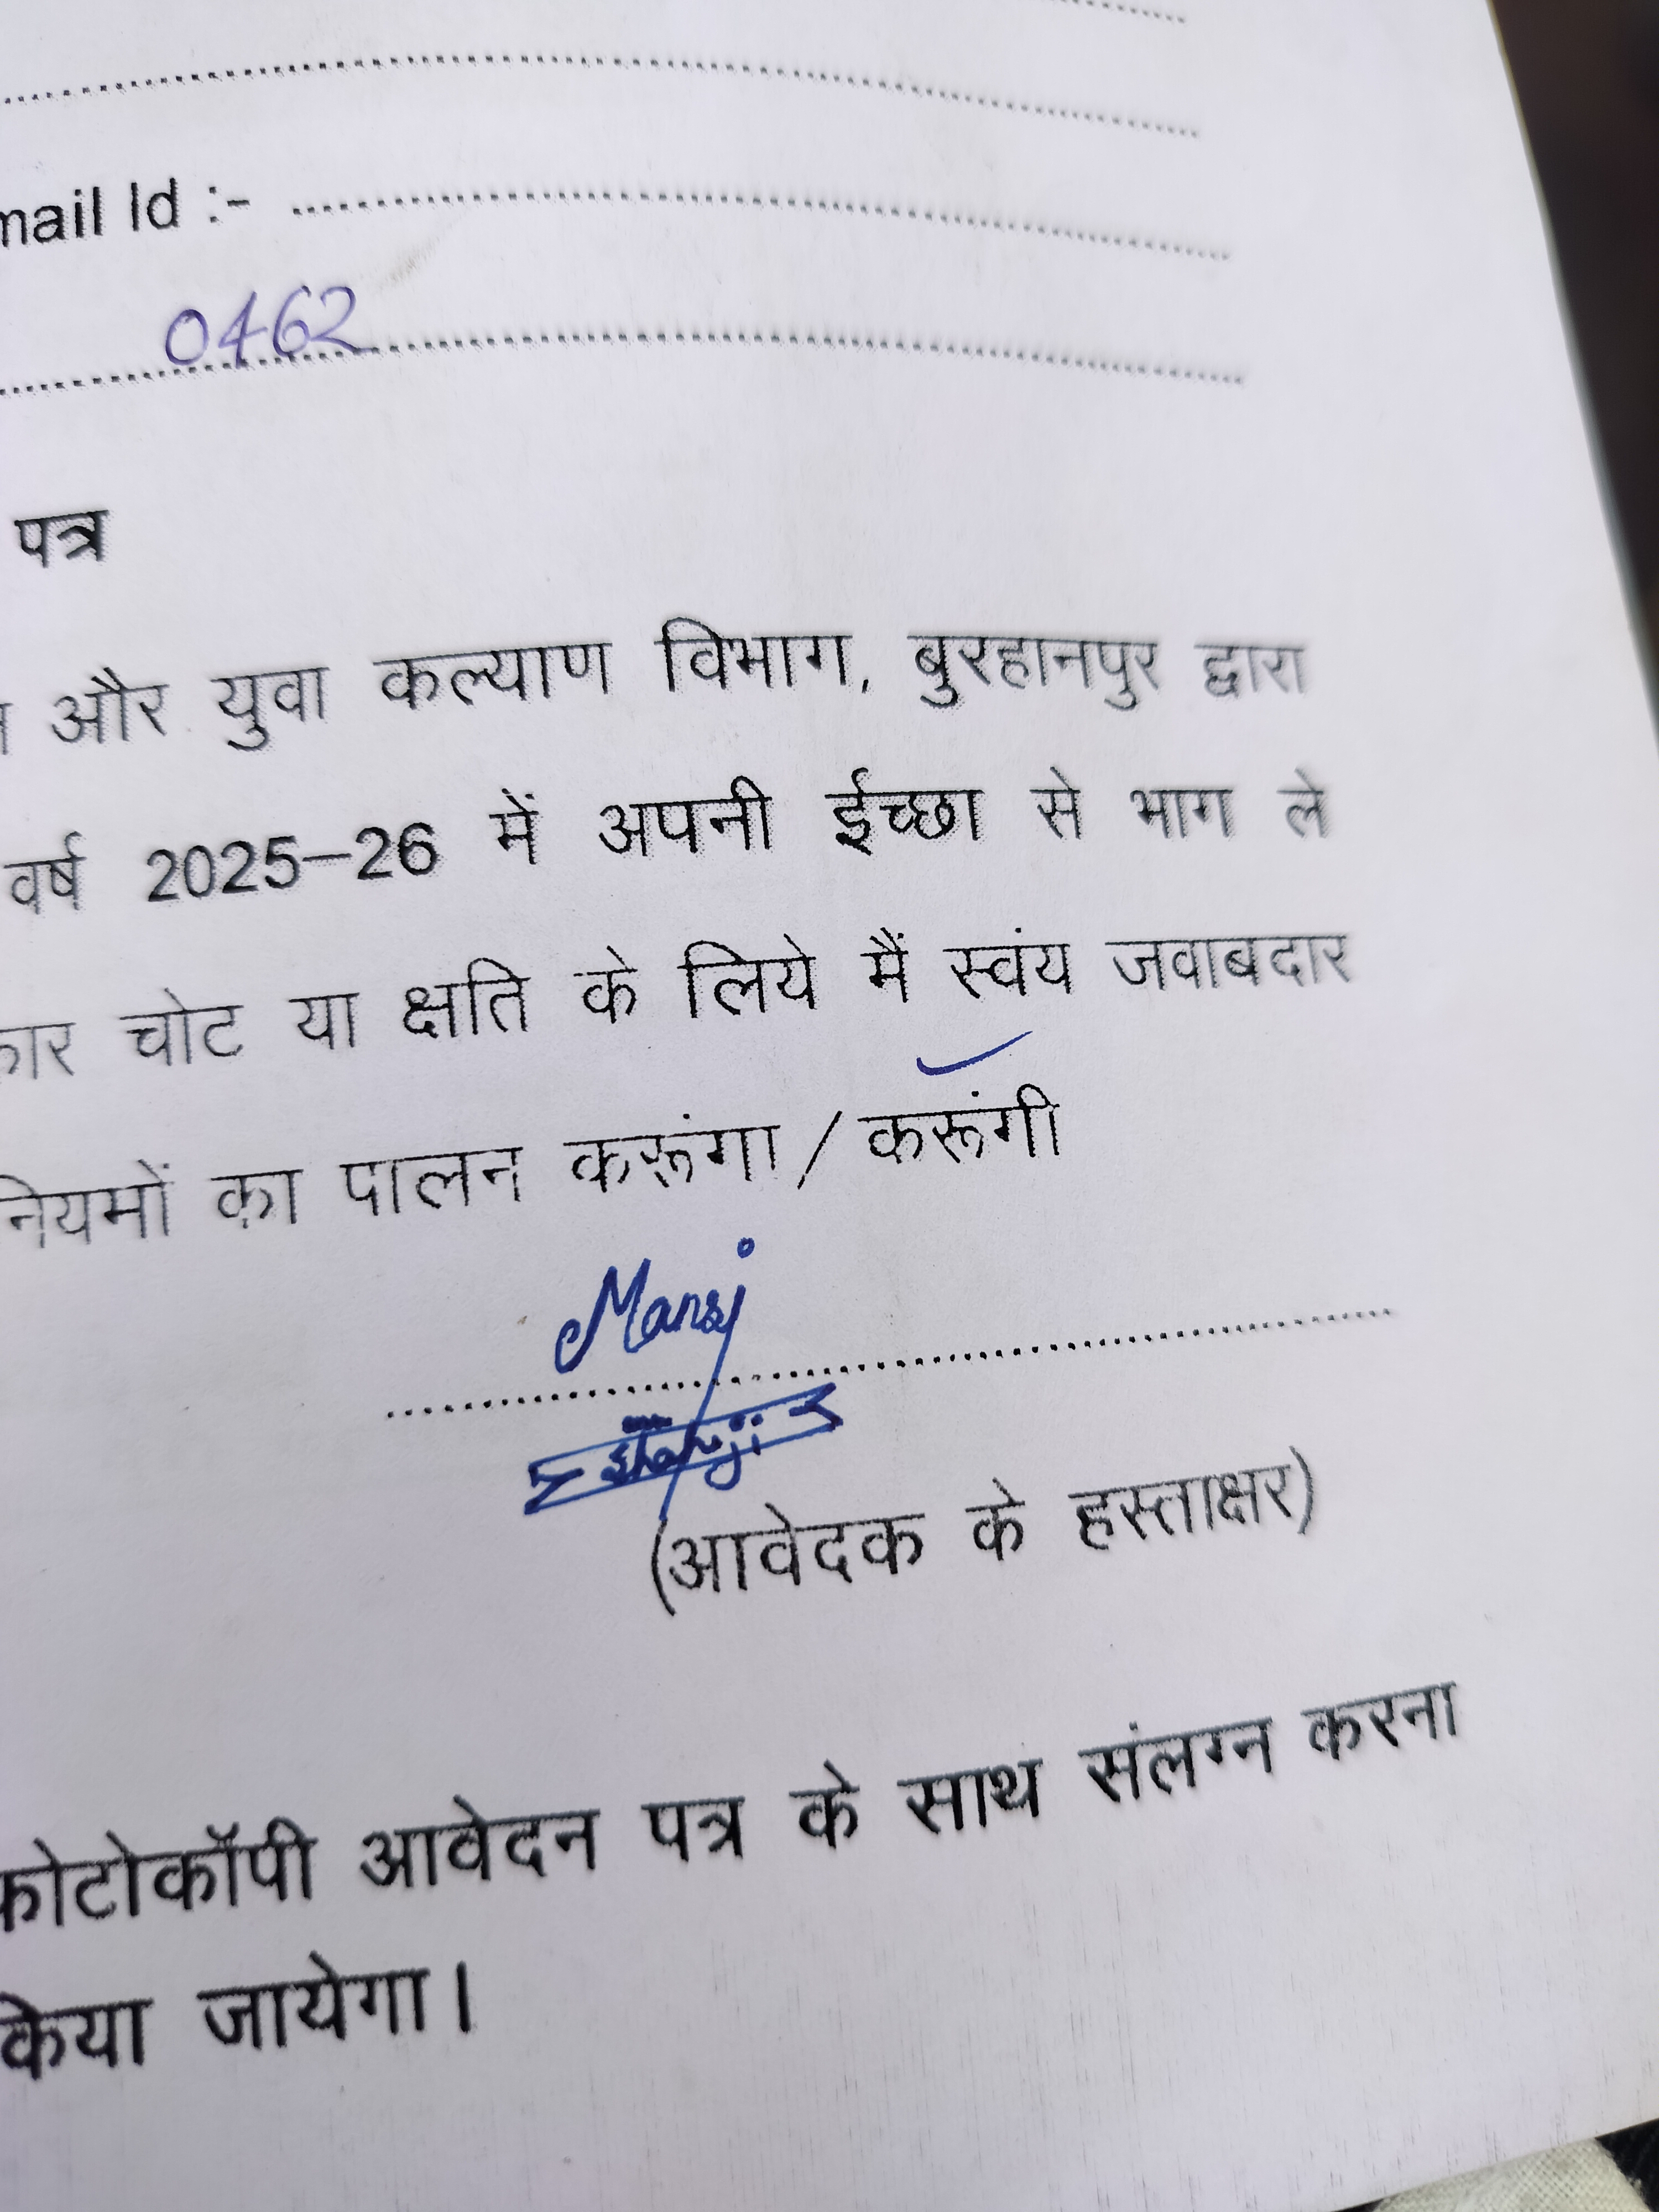 mail Id :- ........................
0462
पत्र
और युवा कल्याण विभाग, बुरहानपुर द्वारा
वर्ष 2025-26 में अपनी ईच्छा से भाग ले
कार चोट या क्षति के लिये मैं स्वंय जवाबदार
नियमों का पालन करूंगा / करूंगी
Mansi
(आवेदक के हस्ताक्षर)
फोटोकॉपी आवेदन पत्र के साथ संलग्न करना
किया जायेगा।